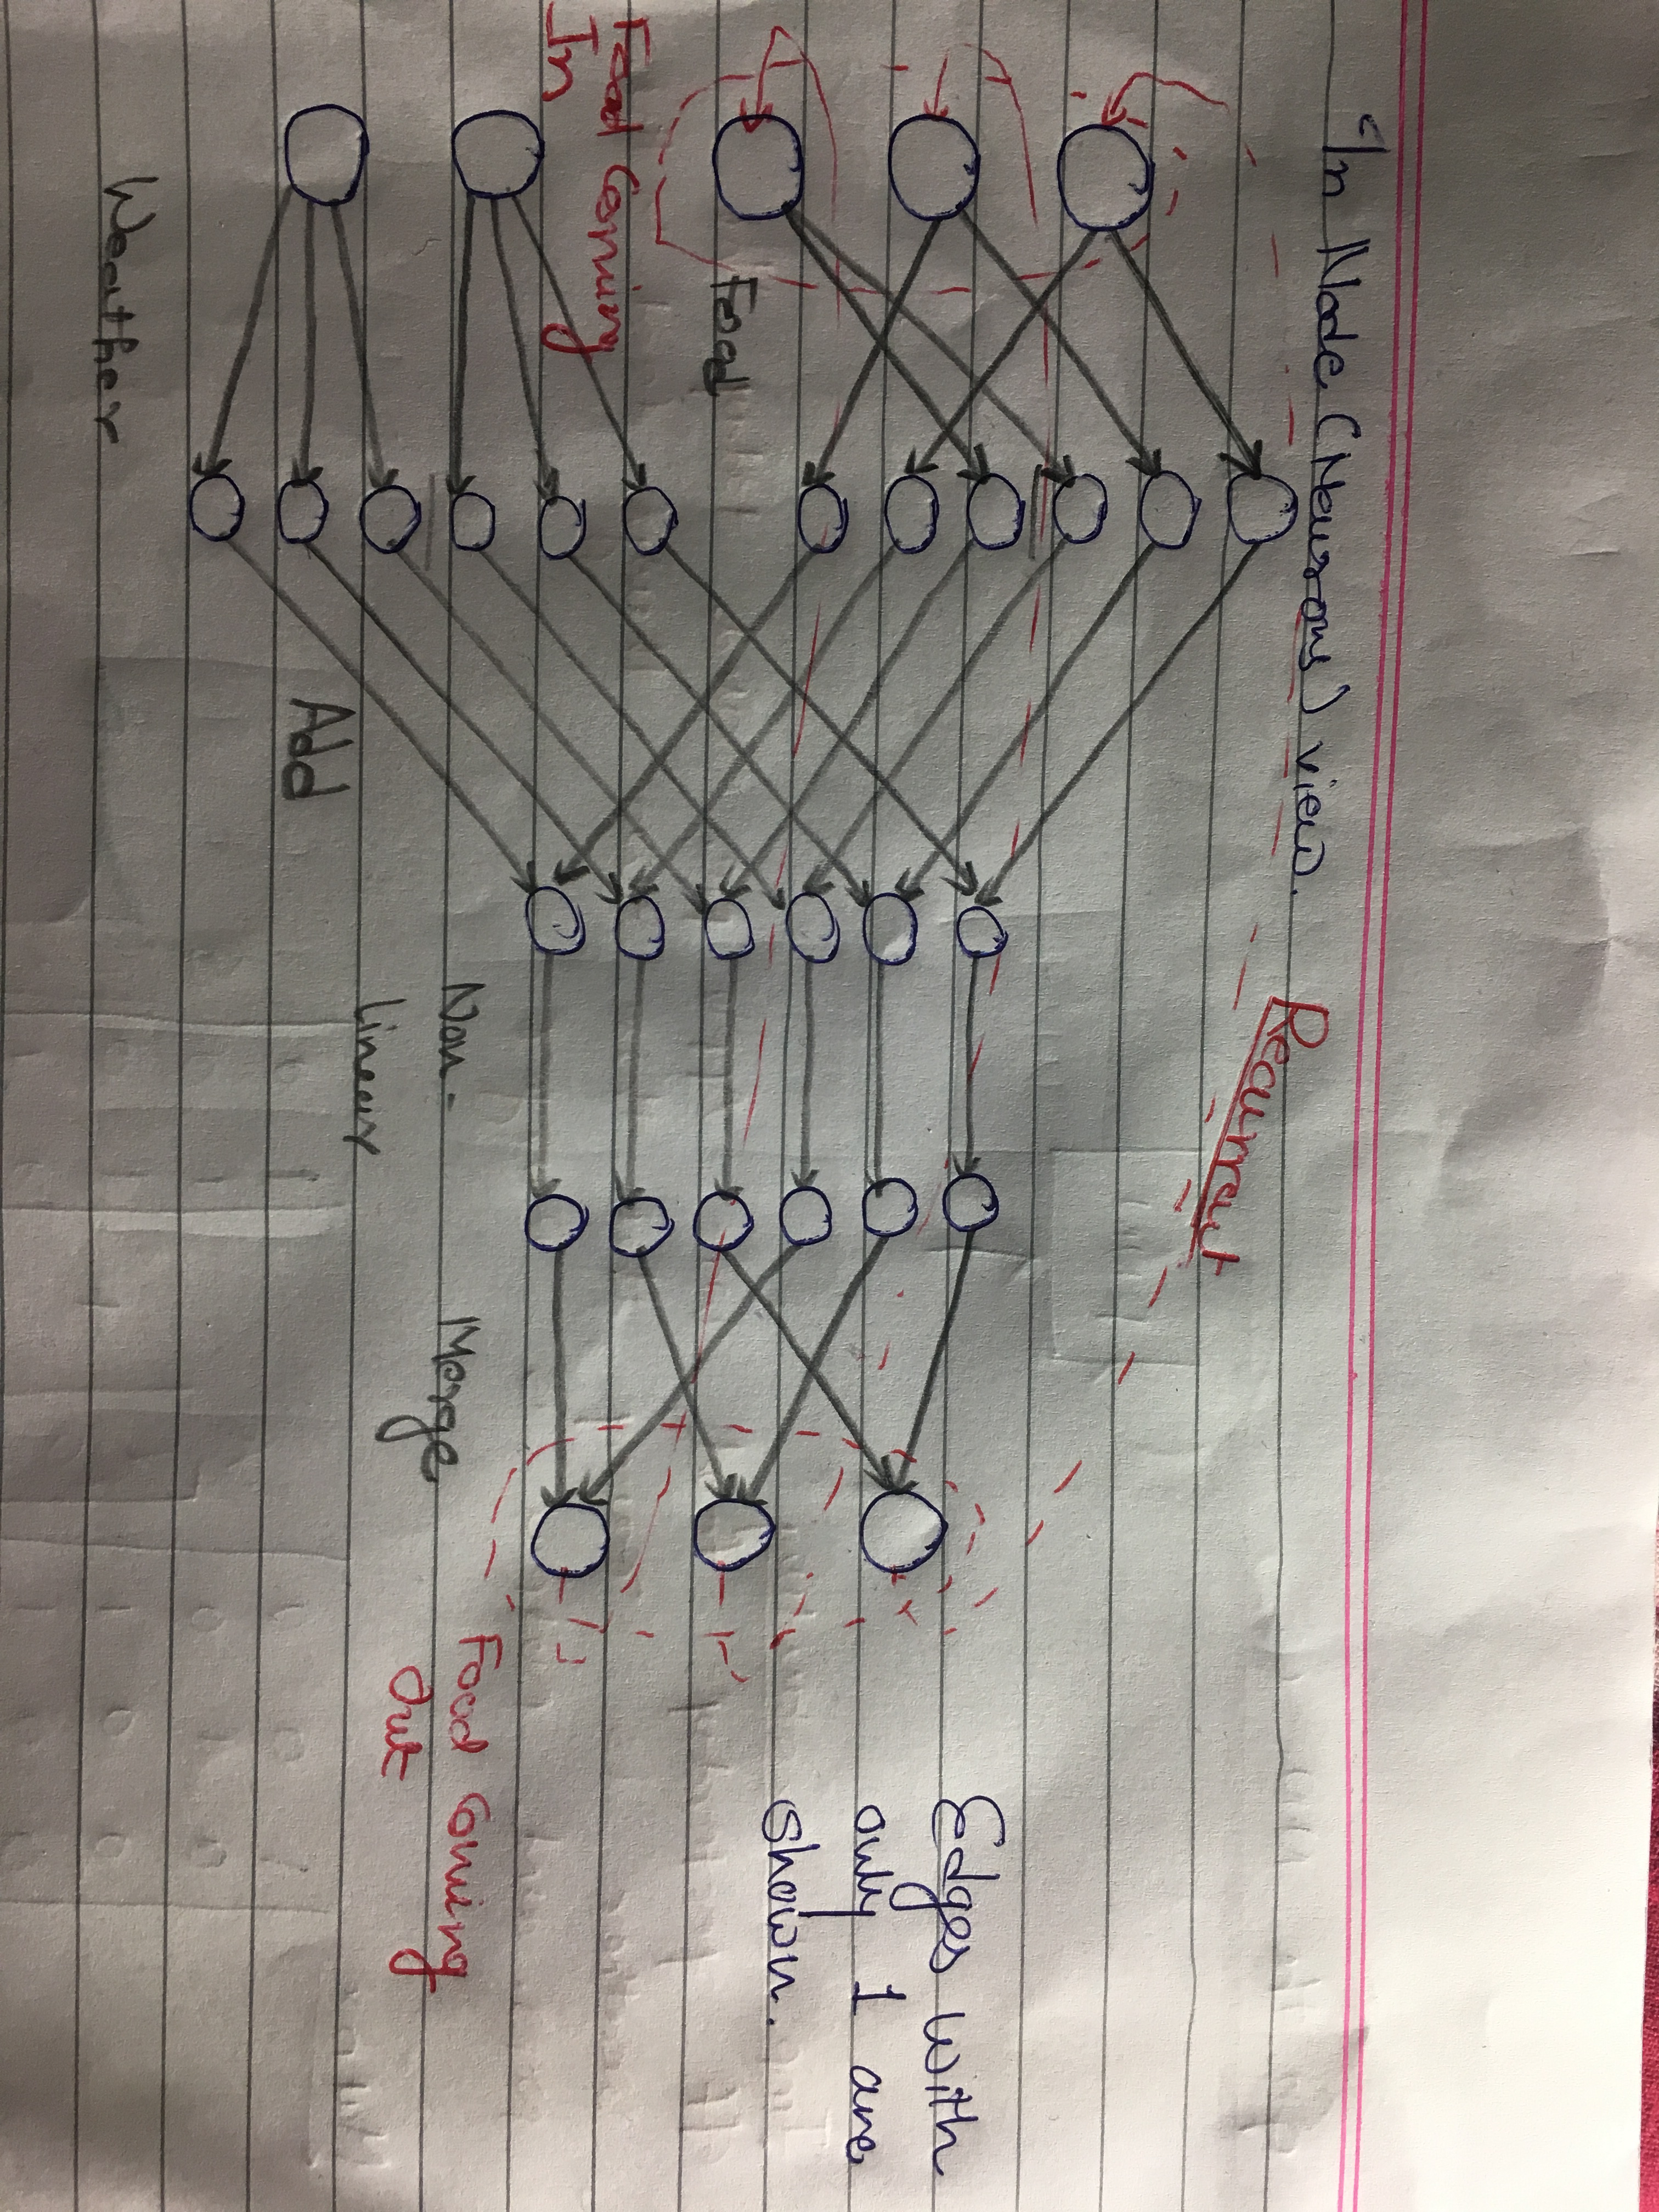 "In Node (Neurons) view.
Recurrent
Food Coming
In
Food
Weather
Add
Non-
Linear
Merge
Food Coming
Out
Edges with
only 1 are
shown.